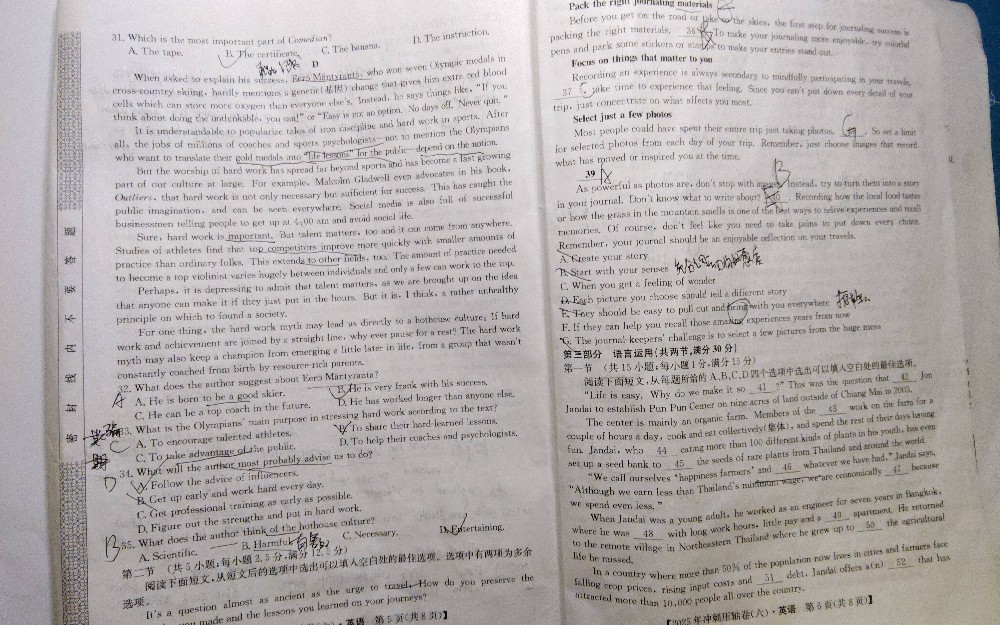 31. Which is the most important part of Comedian?
A. The tape. B. The certificate. C. The banana. D. The instruction.
D
When asked to explain his success, Eero Mäntyranta, who won seven Olympic medals in
cross-country skiing, hardly mentions a genetic(基因) change that gives him extra red blood
cells which can store more oxygen than everyone else's. Instead, he says things like, "If you
think about doing the unthinkable, you can!" or "Easy is not an option. No days off. Never quit."
It is understandable to popularize tales of iron discipline and hard work in sports. After
all, the jobs of millions of coaches and sports psychologists—not to mention the Olympians
who want to translate their gold medals into "life lessons" for the public—depend on the notion.
But the worship of hard work has spread far beyond sports and has become a fast growing
part of our culture at large. For example, Malcolm Gladwell even advocates in his book,
Outliers, that hard work is not only necessary but sufficient for success. This has caught the
public imagination, and can be seen everywhere. Social media is also full of successful
businessmen telling people to get up at 4:00 am and avoid social life.
Sure, hard work is important. But talent matters, too and it can come from anywhere.
Studies of athletes find that top competitors improve more quickly with smaller amounts of
practice than ordinary folks. This extends to other fields, too. The amount of practice needed
to become a top violinist varies hugely between individuals and only a few can work to the top.
Perhaps, it is depressing to admit that talent matters, as we are brought up on the idea
that anyone can make it if they just put in the hours. But it is, I think, a rather unhealthy
principle on which to found a society.
For one thing, the hard work myth may lead us directly to a hothouse culture: If hard
work and achievement are joined by a straight line, why ever pause for a rest? The hard work
myth may also keep a champion from emerging a little later in life, from a group that wasn't
constantly coached from birth by resource-rich parents.
32. What does the author suggest about Eero Mäntyranta?
A. He is born to be a good skier. B. He is very frank with his success.
C. He can be a top coach in the future. D. He has worked longer than anyone else.
33. What is the Olympians' main purpose in stressing hard work according to the text?
A. To encourage talented athletes. B. To share their hard-learned lessons.
C. To take advantage of the public. D. To help their coaches and psychologists.
34. What will the author most probably advise us to do?
A. Follow the advice of influencers.
B. Get up early and work hard every day.
C. Get professional training as early as possible.
D. Figure out the strengths and put in hard work.
35. What does the author think of the hothouse culture?
A. Scientific. B. Harmful. C. Necessary. D. Entertaining.
第二节 (共5小题;每小题2.5分,满分12.5分)
阅读下面短文,从短文后的选项中选出可以填入空白处的最佳选项。选项中有两项为多余
选项。
It's a question almost as ancient as the urge to travel. How do you preserve the
you made and the lessons you learned on your journeys?
英语 第5页(共8页)】
Pack the right journaling materials
Before you get on the road or take to the skies, the first step for journaling success is
packing the right materials. 36 To make your journaling more enjoyable, try colorful
pens and pack some stickers or stamps to make your entries stand out.
Focus on things that matter to you
Recording an experience is always secondary to mindfully participating in your travels.
37 , take time to experience that feeling. Since you can't put down every detail of your
trip, just concentrate on what affects you most.
Select just a few photos
Most people could have spent their entire trip just taking photos. G . So set a limit
for selected photos from each day of your trip. Remember, just choose images that record
what has moved or inspired you at the time.
39
As powerful as photos are, don't stop with images. Instead, try to turn them into a story
in your journal. Don't know what to write about? Recording how the local food tastes
or how the grass in the mountain smells is one of the best ways to relive experiences and recall
memories. Of course, don't feel like you need to take pains to put down every chance.
Remember, your journal should be an enjoyable reflection on your travels.
A. Create your story
B. Start with your senses
C. When you get a feeling of wonder
D. Each picture you choose should tell a different story
E. They should be easy to pull out and bring with you everywhere
F. If they can help you recall those amazing experiences years from now
G. The journal-keepers' challenge is to select a few pictures from the huge mess
第三部分 语言运用(共两节,满分30分)
第一节 (共15小题;每小题1分,满分15分)
阅读下面短文,从每题所给的A、B、C、D四个选项中选出可以填入空白处的最佳选项。
"Life is easy. Why do we make it so 41 ?" This was the question that 42 Jon
Jandai to establish Pun Pun Center on nine acres of land outside of Chang Mai in 2003.
The center is mainly an organic farm. Members of the 43 work on the farm for a
couple of hours a day, cook and eat collectively(集体), and spend the rest of their days having
fun. Jandai, who 44 eating more than 100 different kinds of plants in his youth, has even
set up a seed bank to 45 the seeds of rare plants from Thailand and around the world.
"We call ourselves 'happiness farmers' and 46 whatever we have had," Jandai says,
"Although we earn less than Thailand's minimum wage, we are economically 47 because
we spend even less."
When Jandai was a young adult, he worked as an engineer for seven years in Bangkok,
where he was 48 with long work hours, little pay and a 49 apartment. He returned
to the remote village in Northeastern Thailand where he grew up to 50 the agricultural
life he missed.
In a country where more than 50% of the population now lives in cities and farmers face
falling crop prices, rising input costs and 51 debt, Jandai offers a(n) 52 that has
attracted more than 10,000 people all over the country.
【2025年冲刺压轴卷(六)·英语 第6页(共8页)】